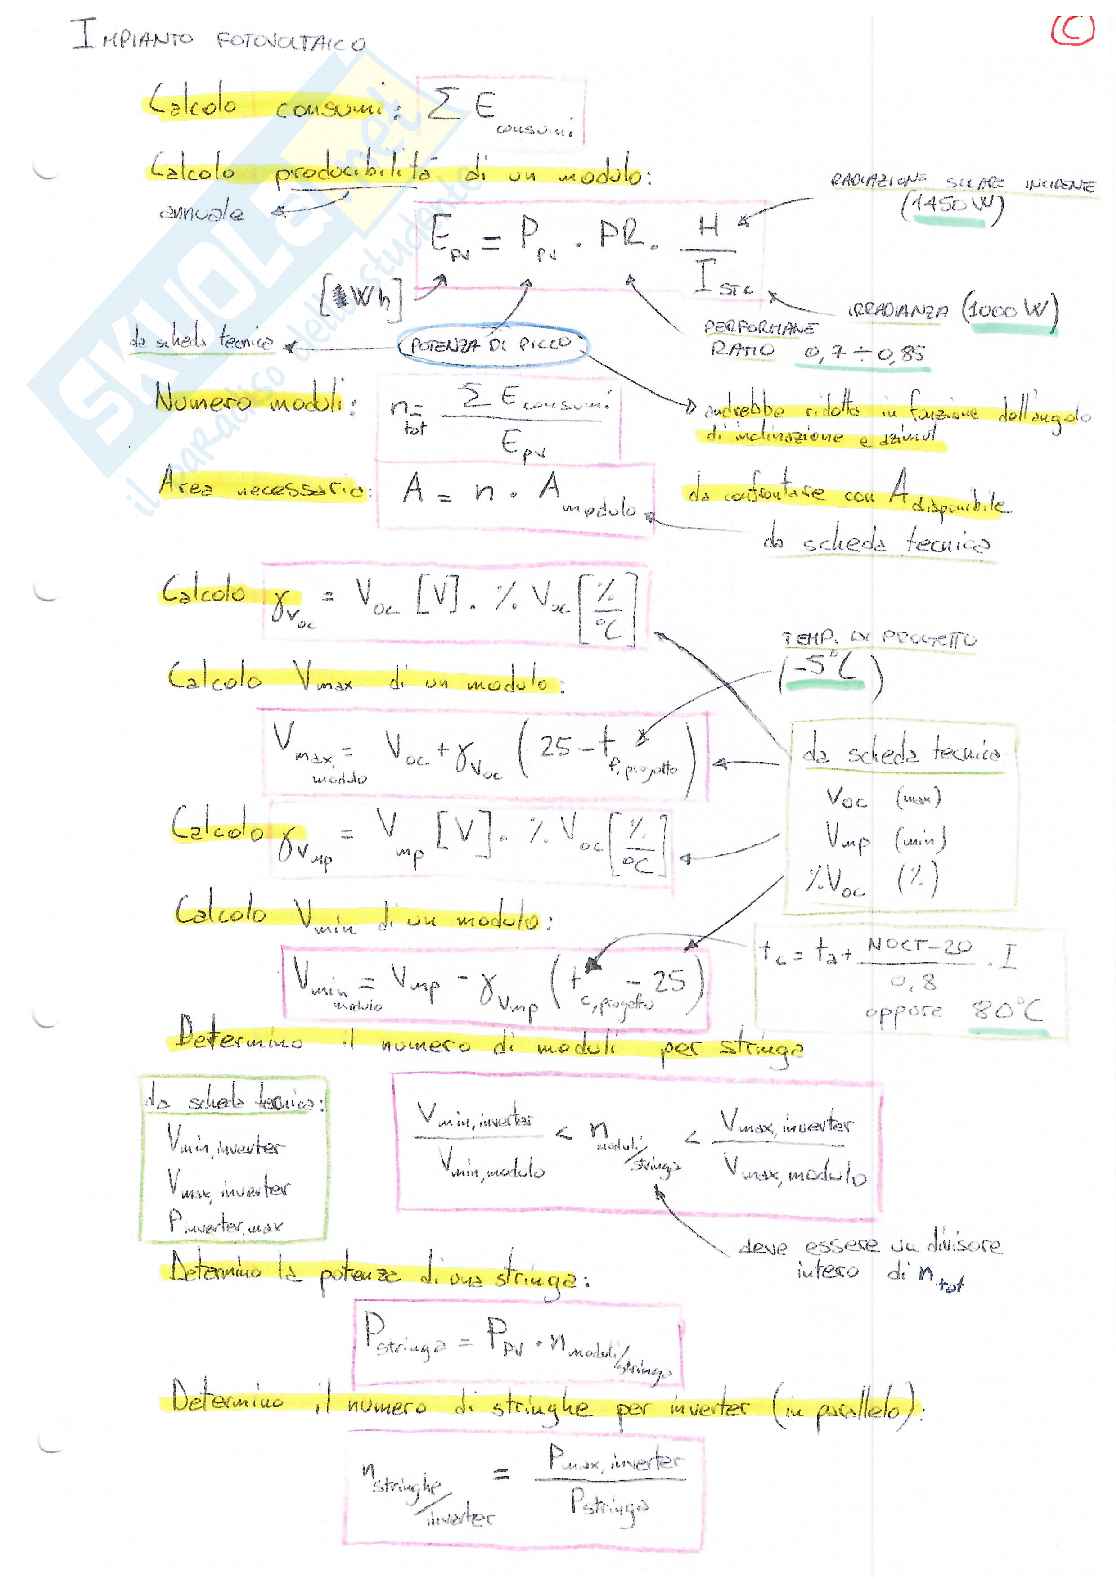 IMPIANTO FOTOVOLTAICO
C
Calcolo consumi: Σ E consumi
Calcolo producibilità di un modulo:
annuale
RADIAZIONE SOLARE INCIDENTE
(1450 W)
E pv = P pv . PR . H / I STC
[Wh]
IRRADIANZA (1000 W)
PERFORMANE
RATIO 0,7 ÷ 0,85
da scheda tecnica
POTENZA DI PICCO
Numero moduli: n tot = Σ E consumi / E pv
andrebbe ridotta in funzione dell'angolo
di inclinazione e azimut
Area necessaria: A = n . A modulo
da confrontare con A disponibile
da scheda tecnica
Calcolo γ Voc = Voc [V] . % Voc [% / °C]
TEMP. DI PROGETTO
(-5°C)
Calcolo Vmax di un modulo:
V max, modulo = Voc + γ Voc (25 - t p, progetto)
da scheda tecnica
Voc (max)
Vmp (min)
%Voc (%)
Calcolo γ Vmp = V mp [V] . % Voc [% / °C]
Calcolo Vmin di un modulo:
V min modulo = Vmp - γ Vmp (t c, progetto - 25)
t c = t a + NOCT-20 / 0,8 . I
oppure 80°C
Determino il numero di moduli per stringa
da scheda tecnica:
Vmin, inverter
Vmax, inverter
P inverter, max
Vmin, inverter / Vmin, modulo < n moduli/stringa < Vmax, inverter / Vmax, modulo
deve essere un divisore
intero di n tot
Determino la potenza di una stringa:
P stringa = P PV . n moduli/stringa
Determino il numero di stringhe per inverter (in parallelo):
n stringhe/inverter = Pmax, inverter / P stringa
SKUOLA.net
il paradiso dello studente